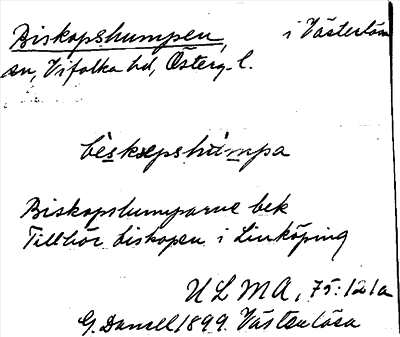 Biskopshumpen, i Västerlösa
sn, Vifolka hd, Österg. l.
bèskɷpshùmpa
Biskopshumparne bek
Tillhör biskopen i Linköping
ULMA, 75:121a
G. Dansell 1899. Västerlösa